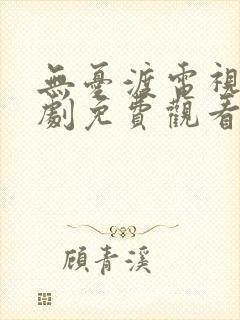 無憂渡電視
劇免費觀看
顧青溪